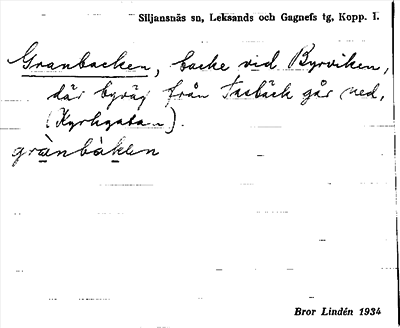 Siljansnäs sn, Leksands och Gagnefs tg, Kopp. l.
Granbacken, backe vid Byrviken,
där byväg från Tasbäck går ned,
(Kyrkgatan).
grànbàkken
Bror Lindén 1934